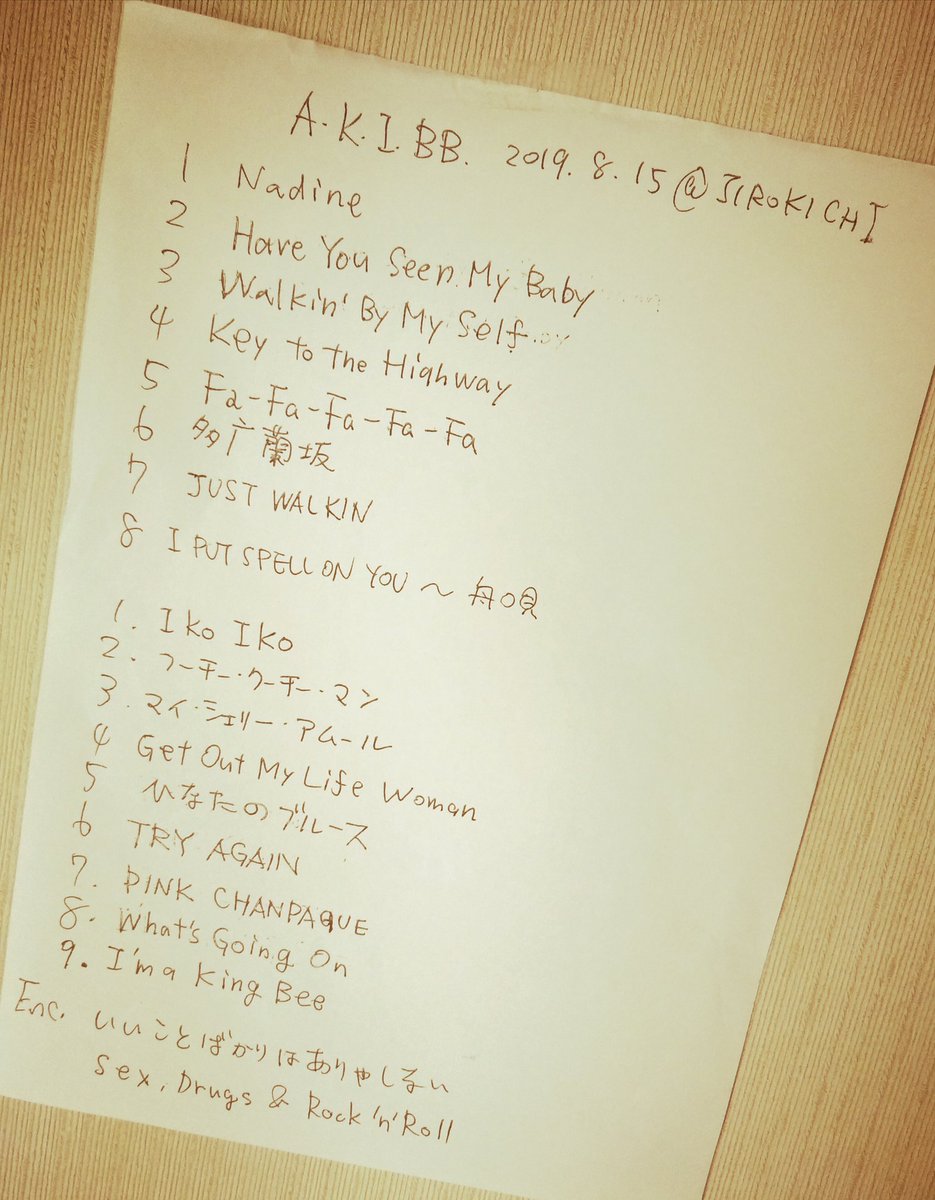 A.K.I.BB. 2019.8.15@JIROKICHI
1 Nadine
2 Have You Seen My Baby
3 Walkin' By My Self
4 Key to the Highway
5 Fa-Fa-Fa-Fa-Fa
6 多广蘭坂
7 JUST WALKIN
8 I PUT SPELL ON YOU ～ 舟唄
1. Iko Iko
2. フーチー・クーチー・マン
3. マイ・シェリー・アムール
4 Get Out My Life Woman
5 ひなたのブルース
6 TRY AGAIN
7. PINK CHANPAGUE
8. What's Going On
9. I'm a King Bee
Enc. いいことばかりはありゃしない
Sex, Drugs & Rock 'n' Roll